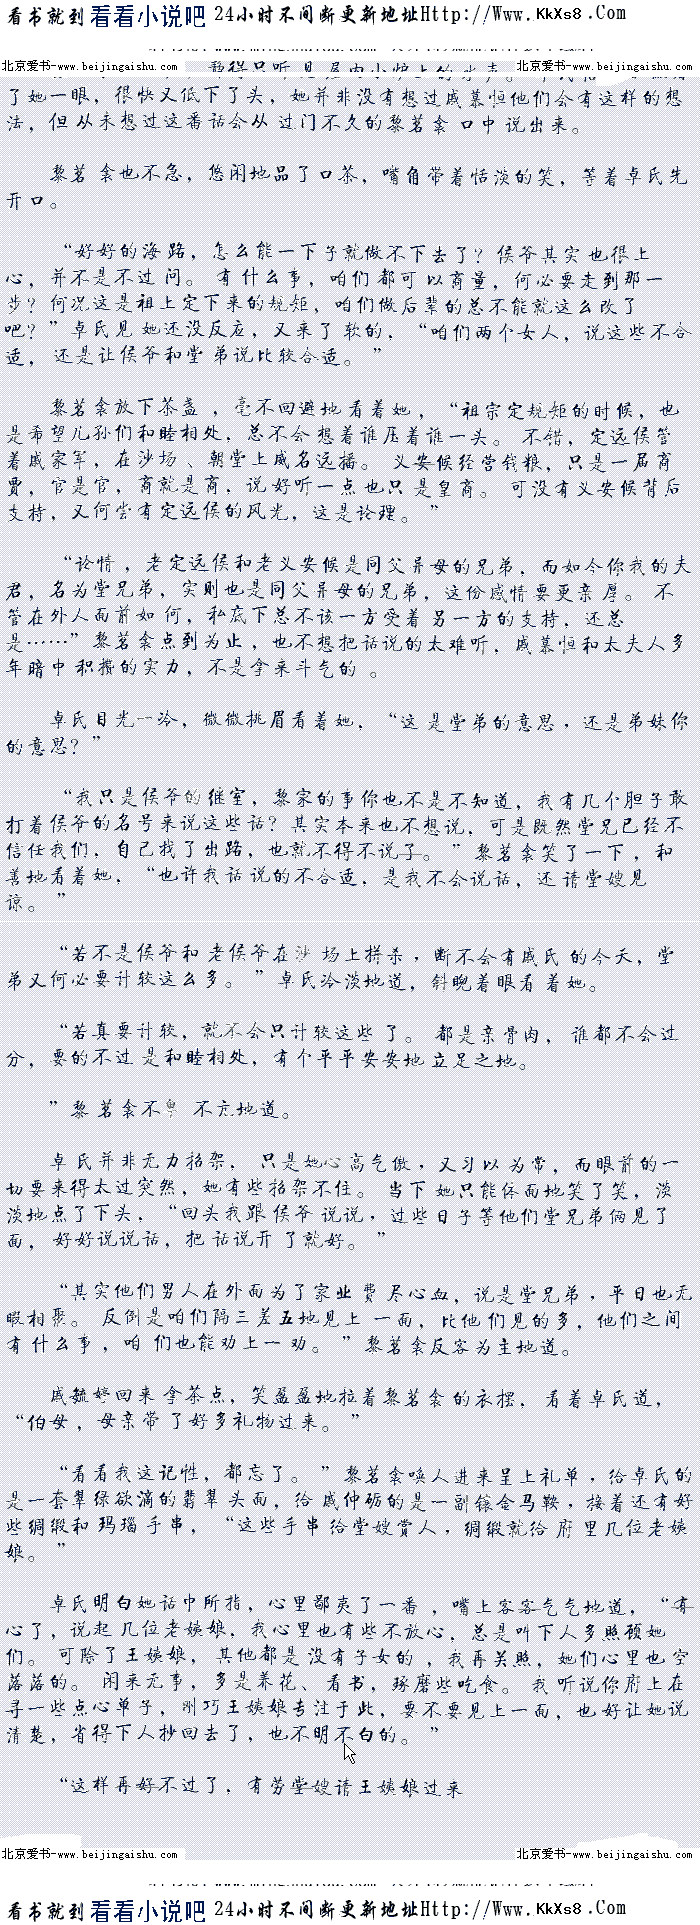 看书就到 看看小说吧 24小时不间断更新地址Http://Www.KkXs8.Com
北京爱书-www.beijingaishu.com 北京爱书-www.beijingaishu.com
了她一眼，很快又低下了头，她并非没有想过戚慕恒他们会有这样的想
法，但从未想过这番话会从过门不久的黎茗衾口中说出来。
黎茗衾也不急，悠闲地品了口茶，嘴角带着恬淡的笑，等着卓氏先
开口。
“好好的海路，怎么能一下子就做不下去了？侯爷其实也很上
心，并不是不过问。有什么事，咱们都可以商量，何必要走到那一
步？何况这是祖上定下来的规矩，咱们做后辈的总不能就这么改了
吧？”卓氏见她还没反应，又来了软的，“咱们两个女人，说这些不合
适，还是让侯爷和堂弟说比较合适。”
黎茗衾放下茶盏，毫不回避地看着她，“祖宗定规矩的时候，也
是希望儿孙们和睦相处，总不会想着谁压着谁一头。不错，定远侯管
着戚家军，在沙场、朝堂上威名远播。义安候经营钱粮，只是一届商
贾，官是官，商就是商，说好听一点也只是皇商。可没有义安候背后
支持，又何尝有定远侯的风光，这是论理。”
“论情，老定远侯和老义安候是同父异母的兄弟，而如今你我的夫
君，名为堂兄弟，实则也是同父异母的兄弟，这份感情要更亲厚。不
管在外人面前如何，私底下总不该一方受着另一方的支持，还总
是……”黎茗衾点到为止，也不想把话说的太难听，戚慕恒和太夫人多
年暗中积攒的实力，不是拿来斗气的。
卓氏目光一冷，微微挑眉看着她，“这是堂弟的意思，还是弟妹你
的意思？”
“我只是侯爷的继室，黎家的事你也不是不知道，我有几个胆子敢
打着侯爷的名号来说这些话？其实本来也不想说，可是既然堂兄已经不
信任我们，自己找了出路，也就不得不说了。”黎茗衾笑了一下，和
善地看着她，“也许我话说的不合适，是我不会说话，还请堂嫂见
谅。”
“若不是侯爷和老侯爷在沙场上拼杀，断不会有戚氏的今天，堂
弟又何必要计较这么多。”卓氏冷淡地道，斜睨着眼看着她。
“若真要计较，就不会只计较这些了。都是亲骨肉，谁都不会过
分，要的不过是和睦相处，有个平平安安地立足之地。
”黎茗衾不卑不亢地道。
卓氏并非无力招架，只是她心高气傲，又习以为常，而眼前的一
切要来得太过突然，她有些招架不住。当下她只能体面地笑了笑，淡
淡地点了下头，“回头我跟侯爷说说，过些日子等他们堂兄弟俩见了
面，好好说说话，把话说开了就好。”
“其实他们男人在外面为了家业费尽心血，说是堂兄弟，平日也无
暇相聚。反倒是咱们隔三差五地见上一面，比他们见的多，他们之间
有什么事，咱们也能劝上一劝。”黎茗衾反客为主地道。
戚毓婷回来拿茶点，笑盈盈地拉着黎茗衾的衣摆，看着卓氏道，
“伯母，母亲带了好多礼物过来。”
“看看我这记性，都忘了。”黎茗衾唤人进来呈上礼单，给卓氏的
是一套翠绿欲滴的翡翠头面，给戚仲砺的是一副镀金马鞍，接着还有好
些绸缎和玛瑙手串，“这些手串给堂嫂赏人，绸缎就给府里几位老姨
娘。”
卓氏明白她话中所指，心里鄙夷了一番，嘴上客客气气地道，“有
心了，说起几位老姨娘，我心里也有些不放心，总是叫下人多照顾她
们。可除了王姨娘，其他都是没有子女的，我再关照，她们心里也空
落落的。闲来无事，多是养花、看书，琢磨些吃食。我听说你府上在
寻一些点心单子，刚巧王姨娘专注于此，要不要见上一面，也好让她说
清楚，省得下人抄回去了，也不明不白的。”
“这样再好不过了，有劳堂嫂请王姨娘过来
北京爱书-www.beijingaishu.com 北京爱书-www.beijingaishu.com
看书就到 看看小说吧 24小时不间断更新地址Http://Www.KkXs8.Com